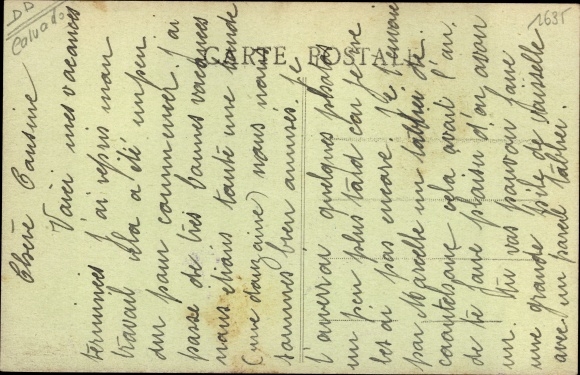 DD
Calvados
2635
CARTE POSTALE
Chère Cousine
Voici mes vacances
terminées j'ai repris mon
travail cela a été un peu
dur pour commencer. J'ai
passé de très bonnes vacances
nous étions toute une bande
(une douzaine) nous nous
sommes bien amusés. Je
t'enverrai quelques photos
un peu plus tard car je ne
les ai pas encore. Je t'envoie
par Marcelle un tablier de
caoutchouc cela avait l'air
de te faire plaisir d'en avoir
un. Tu vas pouvoir faire
une grande pile de vaisselle
avec un pareil tablier.